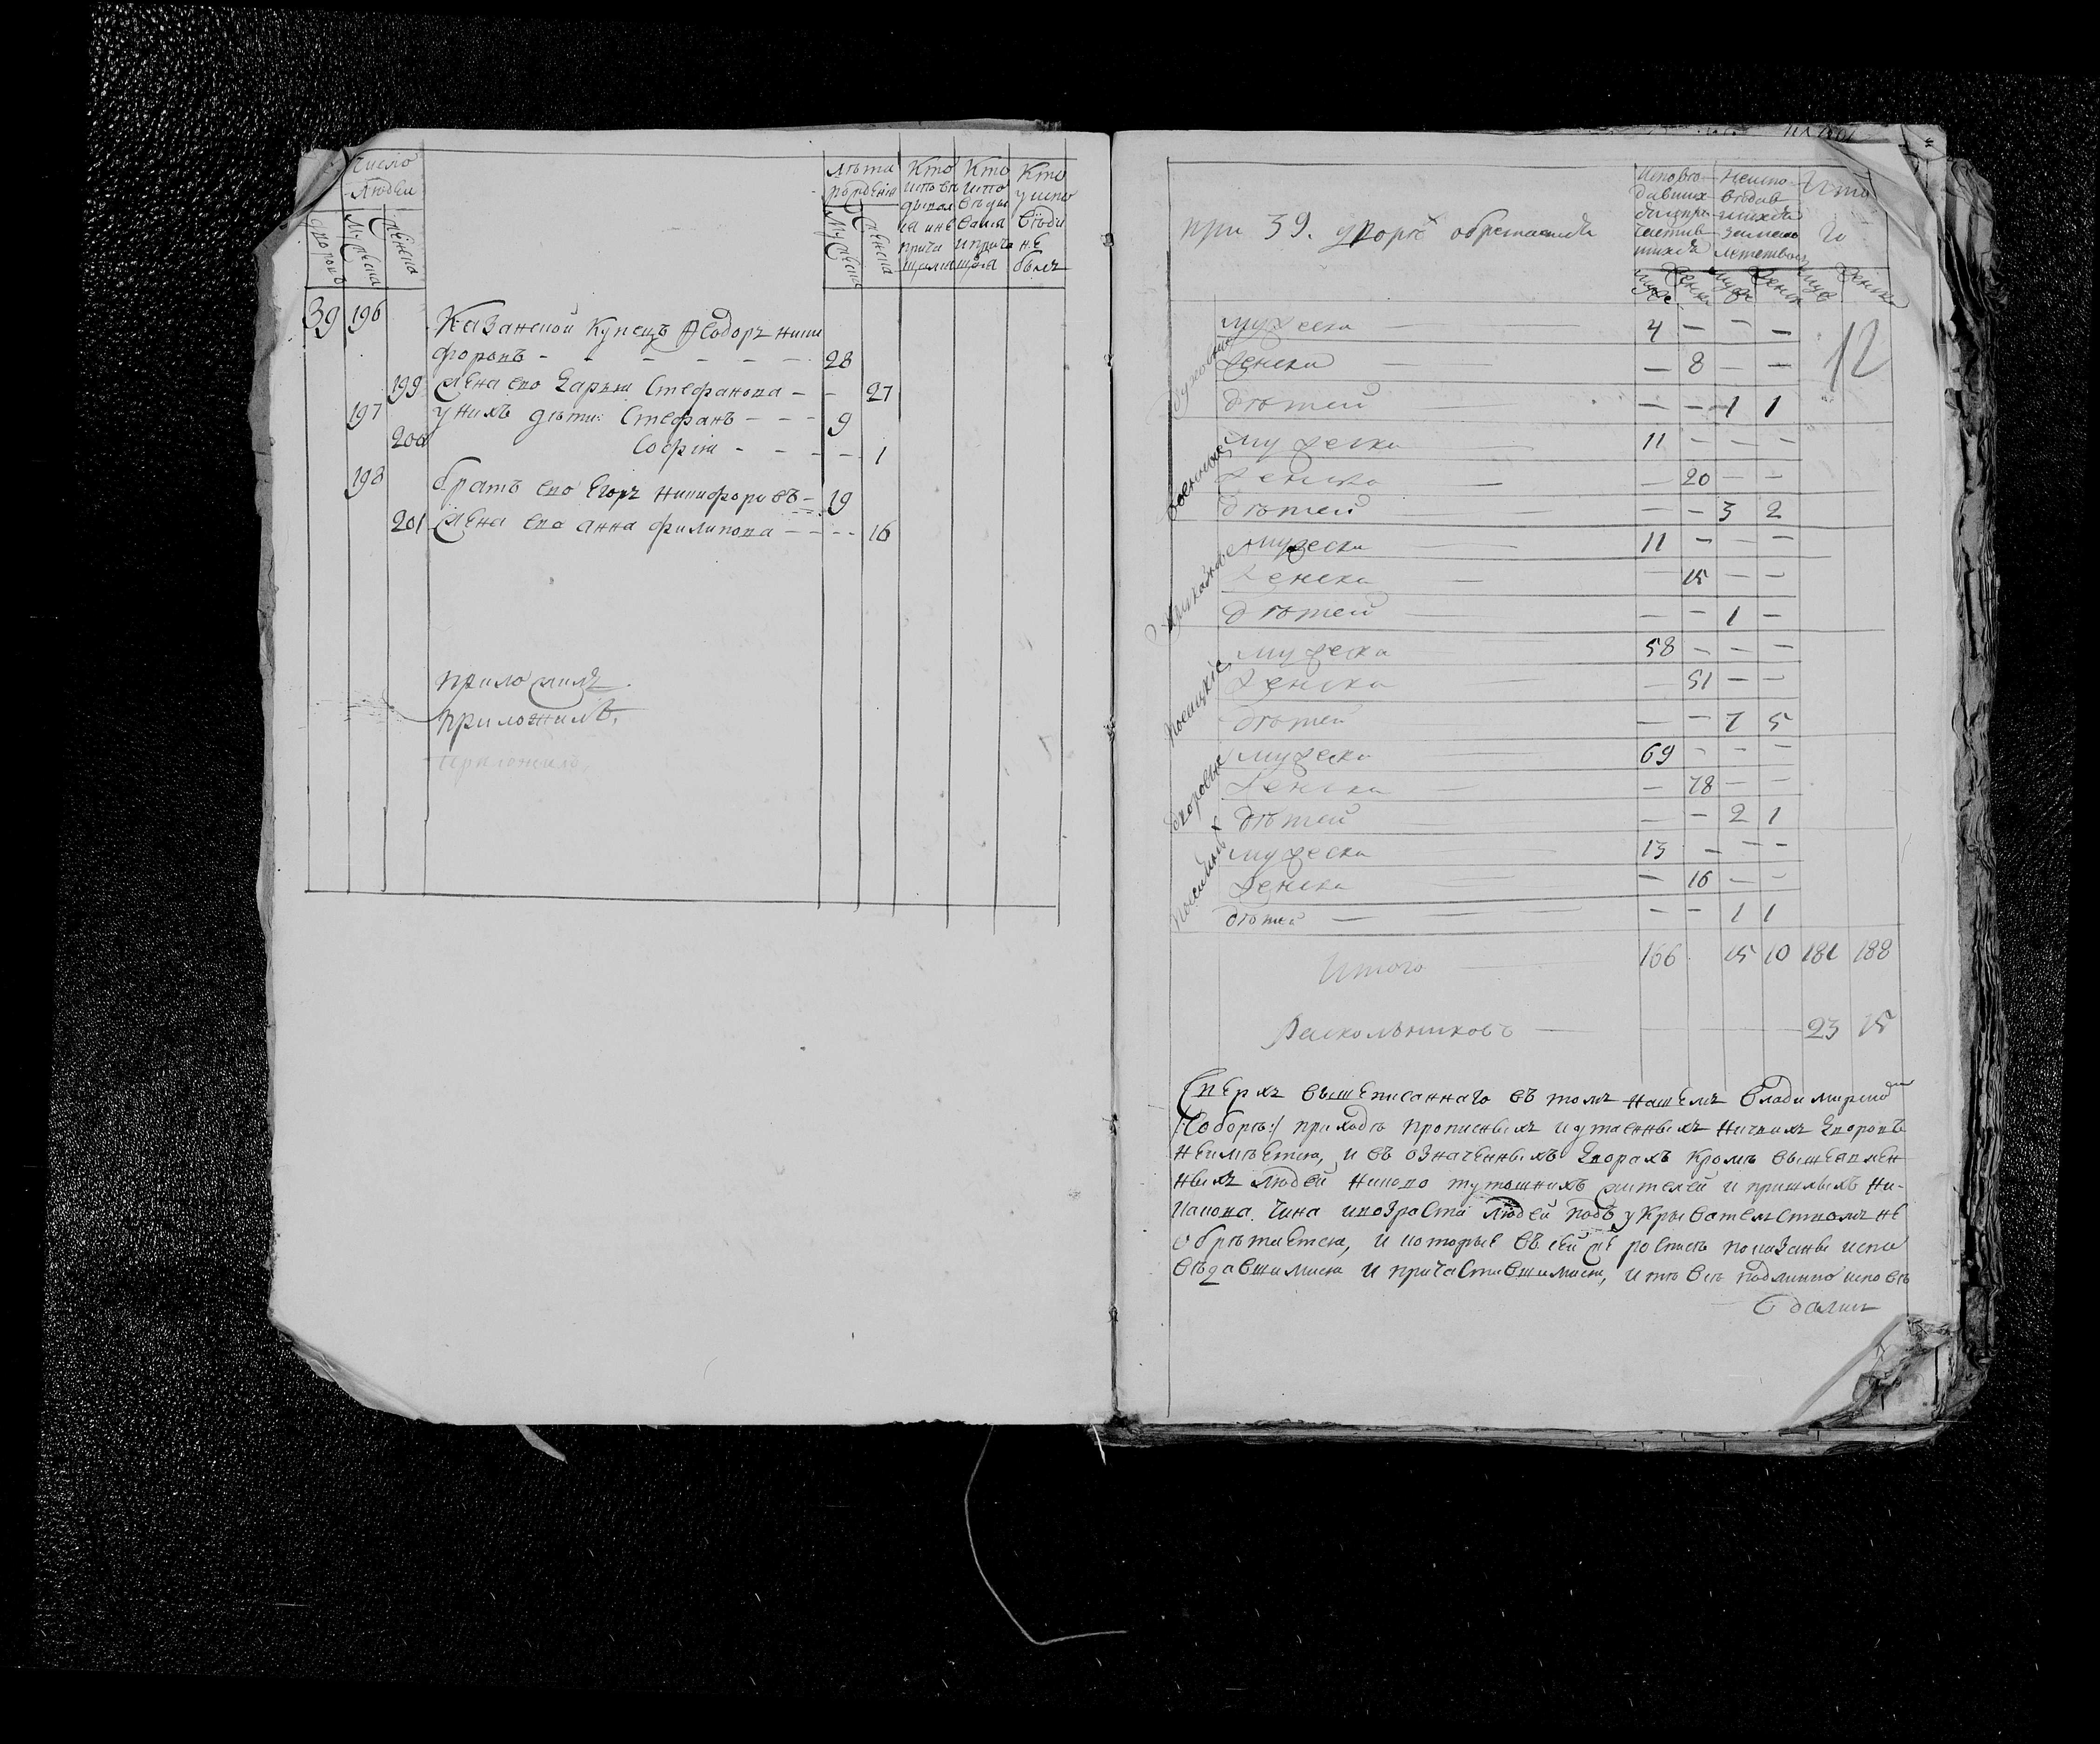 Число
людей
дворовъ
Мужеска
Женска
Лѣта
рожденiя
Мужеска
Женска
Кто
исповѣ
дывал
ся и не
прича
щался
Кто
испо
вѣды
вался
и прича
щался
Кто
у испо
вѣди
не
былъ
39 196 Казанской купецъ Ѳеодоръ Ники
форовъ - - - - - - 28
199 жена его Дарья Стефанова - - 27
197 у нихъ дѣти: Стефанъ - - - 9
200 Софiя - - - - 1
198 братъ его Егоръ Никифоровъ - 19
201 жена его Анна Филипова - - - - 16
приложилъ
приложилъ
приложилъ
при 39. дворѣхъ обретается
Исповѣ-
давших
ся и при
частив
шихся
Неиспо-
вѣдав
шихся
за мало
летством
Ито
го
муж женска муж женск муж женска
Духовные
мужеска — 4 — — —
женска — — 8 — — 12
дѣтей — — — 1 1
военные
мужеска — 11 — — —
женска — — 20 — —
дѣтей — — — 3 2
приказные
мужеска — 11 — — —
женска — — 15 — —
дѣтей — — — 1 —
посацкiе
мужеска — 58 — — —
женска — — 51 — —
дѣтей — — — 7 5
дворовые
мужеска — 69 — — —
женска — — 78 — —
дѣтей — — — 2 1
мужеска — 13 — — —
женска — — 16 — —
дѣтей — — — 1 1
Итого — 166 15 10 181 188
Раскольниковъ — 23 15
Сверхъ вышеписаннаго въ томъ нашемъ Владимирско
/:Соборѣ:/ приходѣ прописныхъ и утаенныхъ никакихъ дворовъ
неимѣется, и въ означенныхъ дворахъ кромѣ вышеявлен
ныхъ людей никого тутошнихъ жителей и пришлыхъ ни-
какова чина и возраста людей подъ укрывательствомъ не
обрѣтается, и которые въ сей же росписѣ показаны испо
вѣдавшимися и причастившимися, и тѣ всѣ подлинно исповѣ
dалис